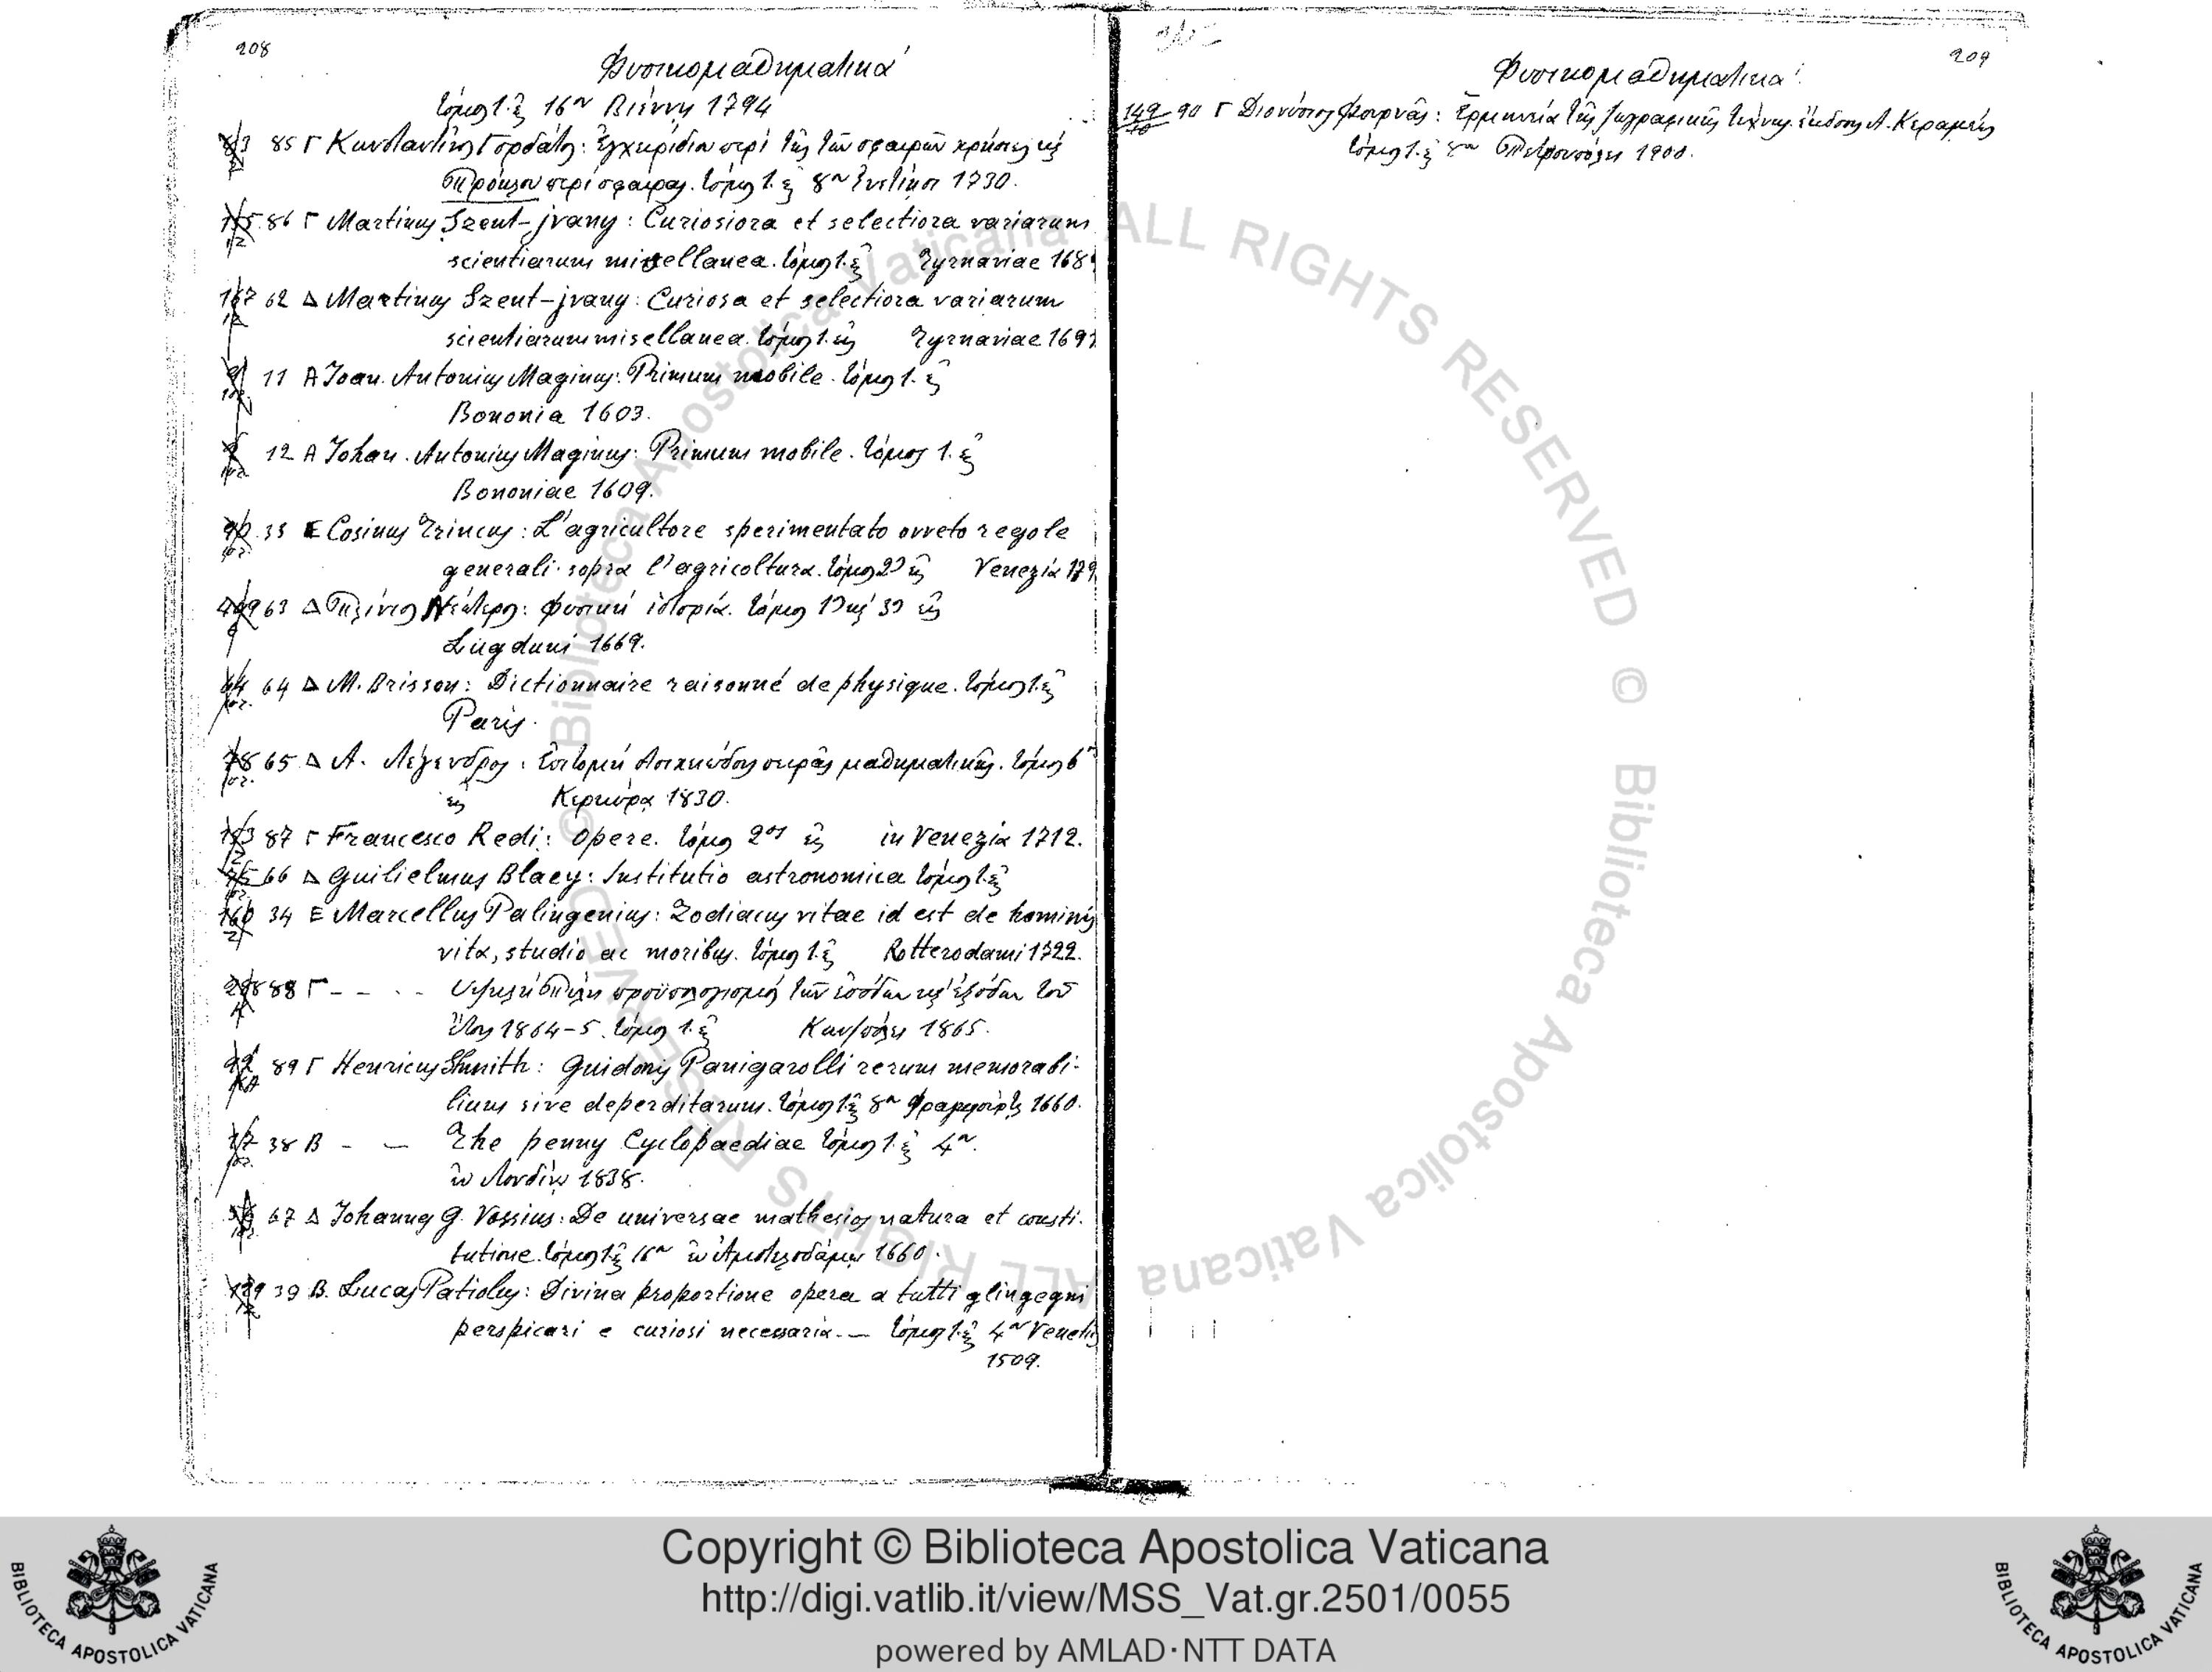 208
Φυσικομαθηματικά
τόμος 1. εἰς 16ον Βιέννη 1794
85 Γ Κωνσταντῖνος Γορδάτος: Ἐγχειρίδιον περὶ τῆς τῶν σφαιρῶν χρήσεως καὶ
Πρόκλου περὶ σφαίρας. τόμος 1. εἰς 8ον Ἐνετίησι 1730.
86 Γ Martinus Szent-jvany: Curiosiora et selectiora variarum
scientiarum miscellanea. τόμος 1. εἰς Tyrnaviae 168
62 Δ Martinus Szent-jvany: Curiosa et selectiora variarum
scientiarum misellanea. τόμος 1. εἰς Tyrnaviae 1691
11 Α Joan. Antonius Maginus: Primum mobile. τόμος 1. εἰς
Bononia 1603.
12 Α Johan. Antonius Maginus: Primum mobile. τόμος 1. εἰς
Bononiae 1609.
33 Ε Cosimus Trincus: L'agricultore sperimentato ovveto regole
generali sopra l'agricoltura. τόμος 2ος εἰς Venezia
63 Δ Πλίνιος Νεώτερος: Φυσικὴ ἱστορία. τόμος 1ος καὶ 3ος εἰς
Lugduni 1669.
64 Δ M. Brisson: Dictionnaire raisonné de physique. τόμος 1. εἰς
Paris.
65 Δ Α. Λεγένδρος: Ἐπιτομὴ στοιχειώδους σειρᾶς μαθηματικῆς. τόμος 6
εἰς Κερκύρᾳ 1830.
87 Γ Francesco Redi: Opere. τόμος 2ος εἰς in Venezia 1712.
66 Δ Guilielmus Blaey: Institutio astronomica τόμος 1. εἰς
160 34 Ε Marcellus Palingenius: Zodiacus vitae id est de hominis
vita, studio ac moribus. τόμος 1. εἰς Rotterodami 1722.
88 Γ - - - - Ὑψηλὴ Πύλη προϋπολογισμὸς τῶν ἐσόδων καὶ ἐξόδων τοῦ
ἔτους 1864-5. τόμος 1. εἰς Κων/πόλει 1865.
89 Γ Henricus Shmith: Guidonis Panigarolli rerum memorabi-
lium sive deperditarum. τόμος 1. εἰς 8ον 1660.
38 Β - — The penny Cyclopaediae τόμος 1. εἰς 4ον.
ἐν Λονδίνῳ 1838.
67 Δ Johannes G. Vossius: De universae mathesios natura et consti-
tutione. τόμος 1. εἰς 16ον ἐν Ἀμστελοδάμῳ 1660.
39 Β. Lucas Patiolus: Divina proportione opera a tutti glingegni
perspicari e curiosi necessaria. — τόμος 1. εἰς 4ον Venetiis
1509.
209
Φυσικομαθηματικά
149 90 Γ Διονύσιος Φουρνᾶς: Ἑρμηνεία τῆς ζωγραφικῆς τέχνης. ἔκδοσις Α. Κεραμέως
τόμος 1. εἰς 8ον Πετρουπόλει 1900.
© Biblioteca Apostolica Vaticana ALL RIGHTS RESERVED © Biblioteca Apostolica Vaticana ALL RIGHTS RESERVED
Copyright © Biblioteca Apostolica Vaticana
http://digi.vatlib.it/view/MSS_Vat.gr.2501/0055
powered by AMLAD·NTT DATA
BIBLIOTECA APOSTOLICA VATICANA
BIBLIOTECA APOSTOLICA VATICANA